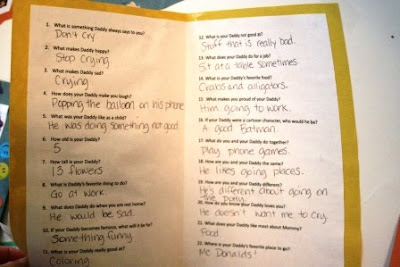 1. What is something Daddy always says to you?
Don't Cry
2. What makes Daddy happy?
Stop Crying
3. What makes Daddy sad?
Crying
4. How does your Daddy make you laugh?
Popping the balloon on his phone
5. What was your Daddy like as a child?
He was doing something not good
6. How old is your Daddy?
5
7. How tall is your Daddy?
13 flowers
8. What is Daddy's favorite thing to do?
Go at work.
9. What does Daddy do when you are not home?
He would be sad.
10. If your Daddy becomes famous, what will it be for?
Something funny
11. What is your Daddy really good at?
Coloring.
12. What is your Daddy not good at?
Stuff that is really bad.
13. What does your Daddy do for a job?
Sit at a table sometimes
14. What is your Daddy's favorite food?
Crabs and alligators.
15. What makes you proud of your Daddy?
Him going to work.
16. If your Daddy were a cartoon character, who would he be?
A good Batman.
17. What do you and your Daddy do together?
Play phone games.
18. How are you and your Daddy the same?
He likes going places.
19. How are you and your Daddy different?
He's different about going on
the potty.
20. How do you know your Daddy loves you?
He doesn't want me to cry.
21. What does your Daddy like most about Mommy?
Food
22. Where is your Daddy's favorite place to go?
Mc Donalds!